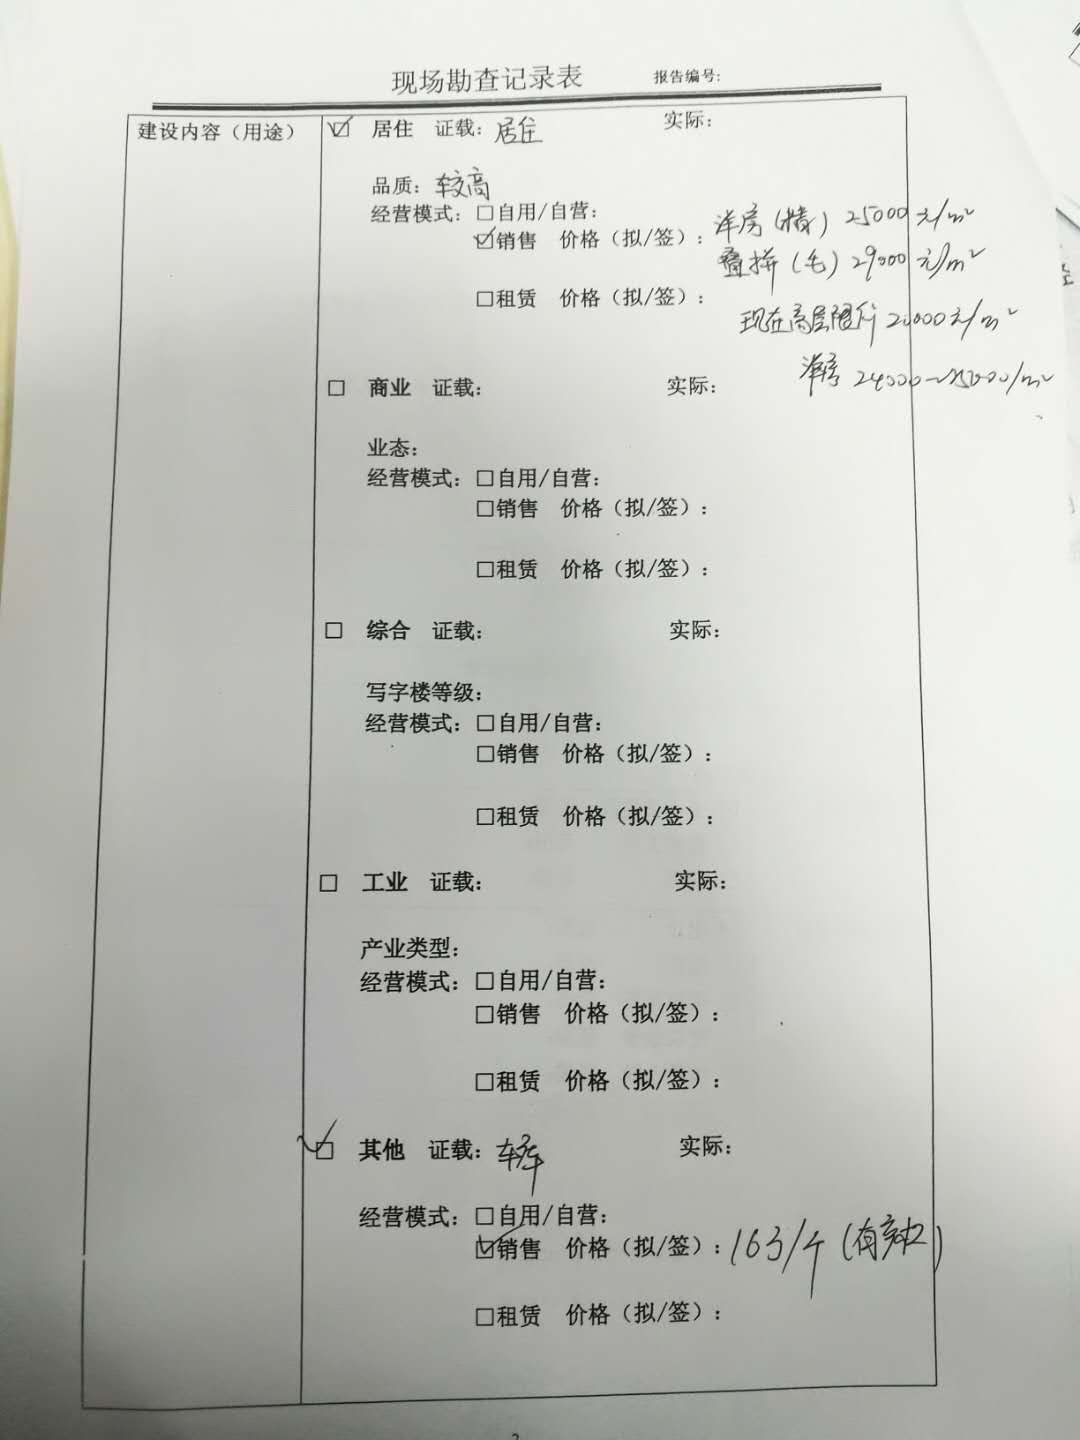 现场勘查记录表 报告编号:
建设内容（用途） ☑ 居住 证载: 居住 实际:
品质: 较高
经营模式: □自用/自营:
☑销售 价格（拟/签）: 洋房（精）25000元/m²
叠拼（毛）29000元/m²
□租赁 价格（拟/签）:
现在高层限价20000元/m²
洋房 24000~25000/m²
□ 商业 证载: 实际:
业态:
经营模式: □自用/自营:
□销售 价格（拟/签）:
□租赁 价格（拟/签）:
□ 综合 证载: 实际:
写字楼等级:
经营模式: □自用/自营:
□销售 价格（拟/签）:
□租赁 价格（拟/签）:
□ 工业 证载: 实际:
产业类型:
经营模式: □自用/自营:
□销售 价格（拟/签）:
□租赁 价格（拟/签）:
☑ 其他 证载: 车库 实际:
经营模式: □自用/自营:
☑销售 价格（拟/签）: 16万/个（有产权）
□租赁 价格（拟/签）: